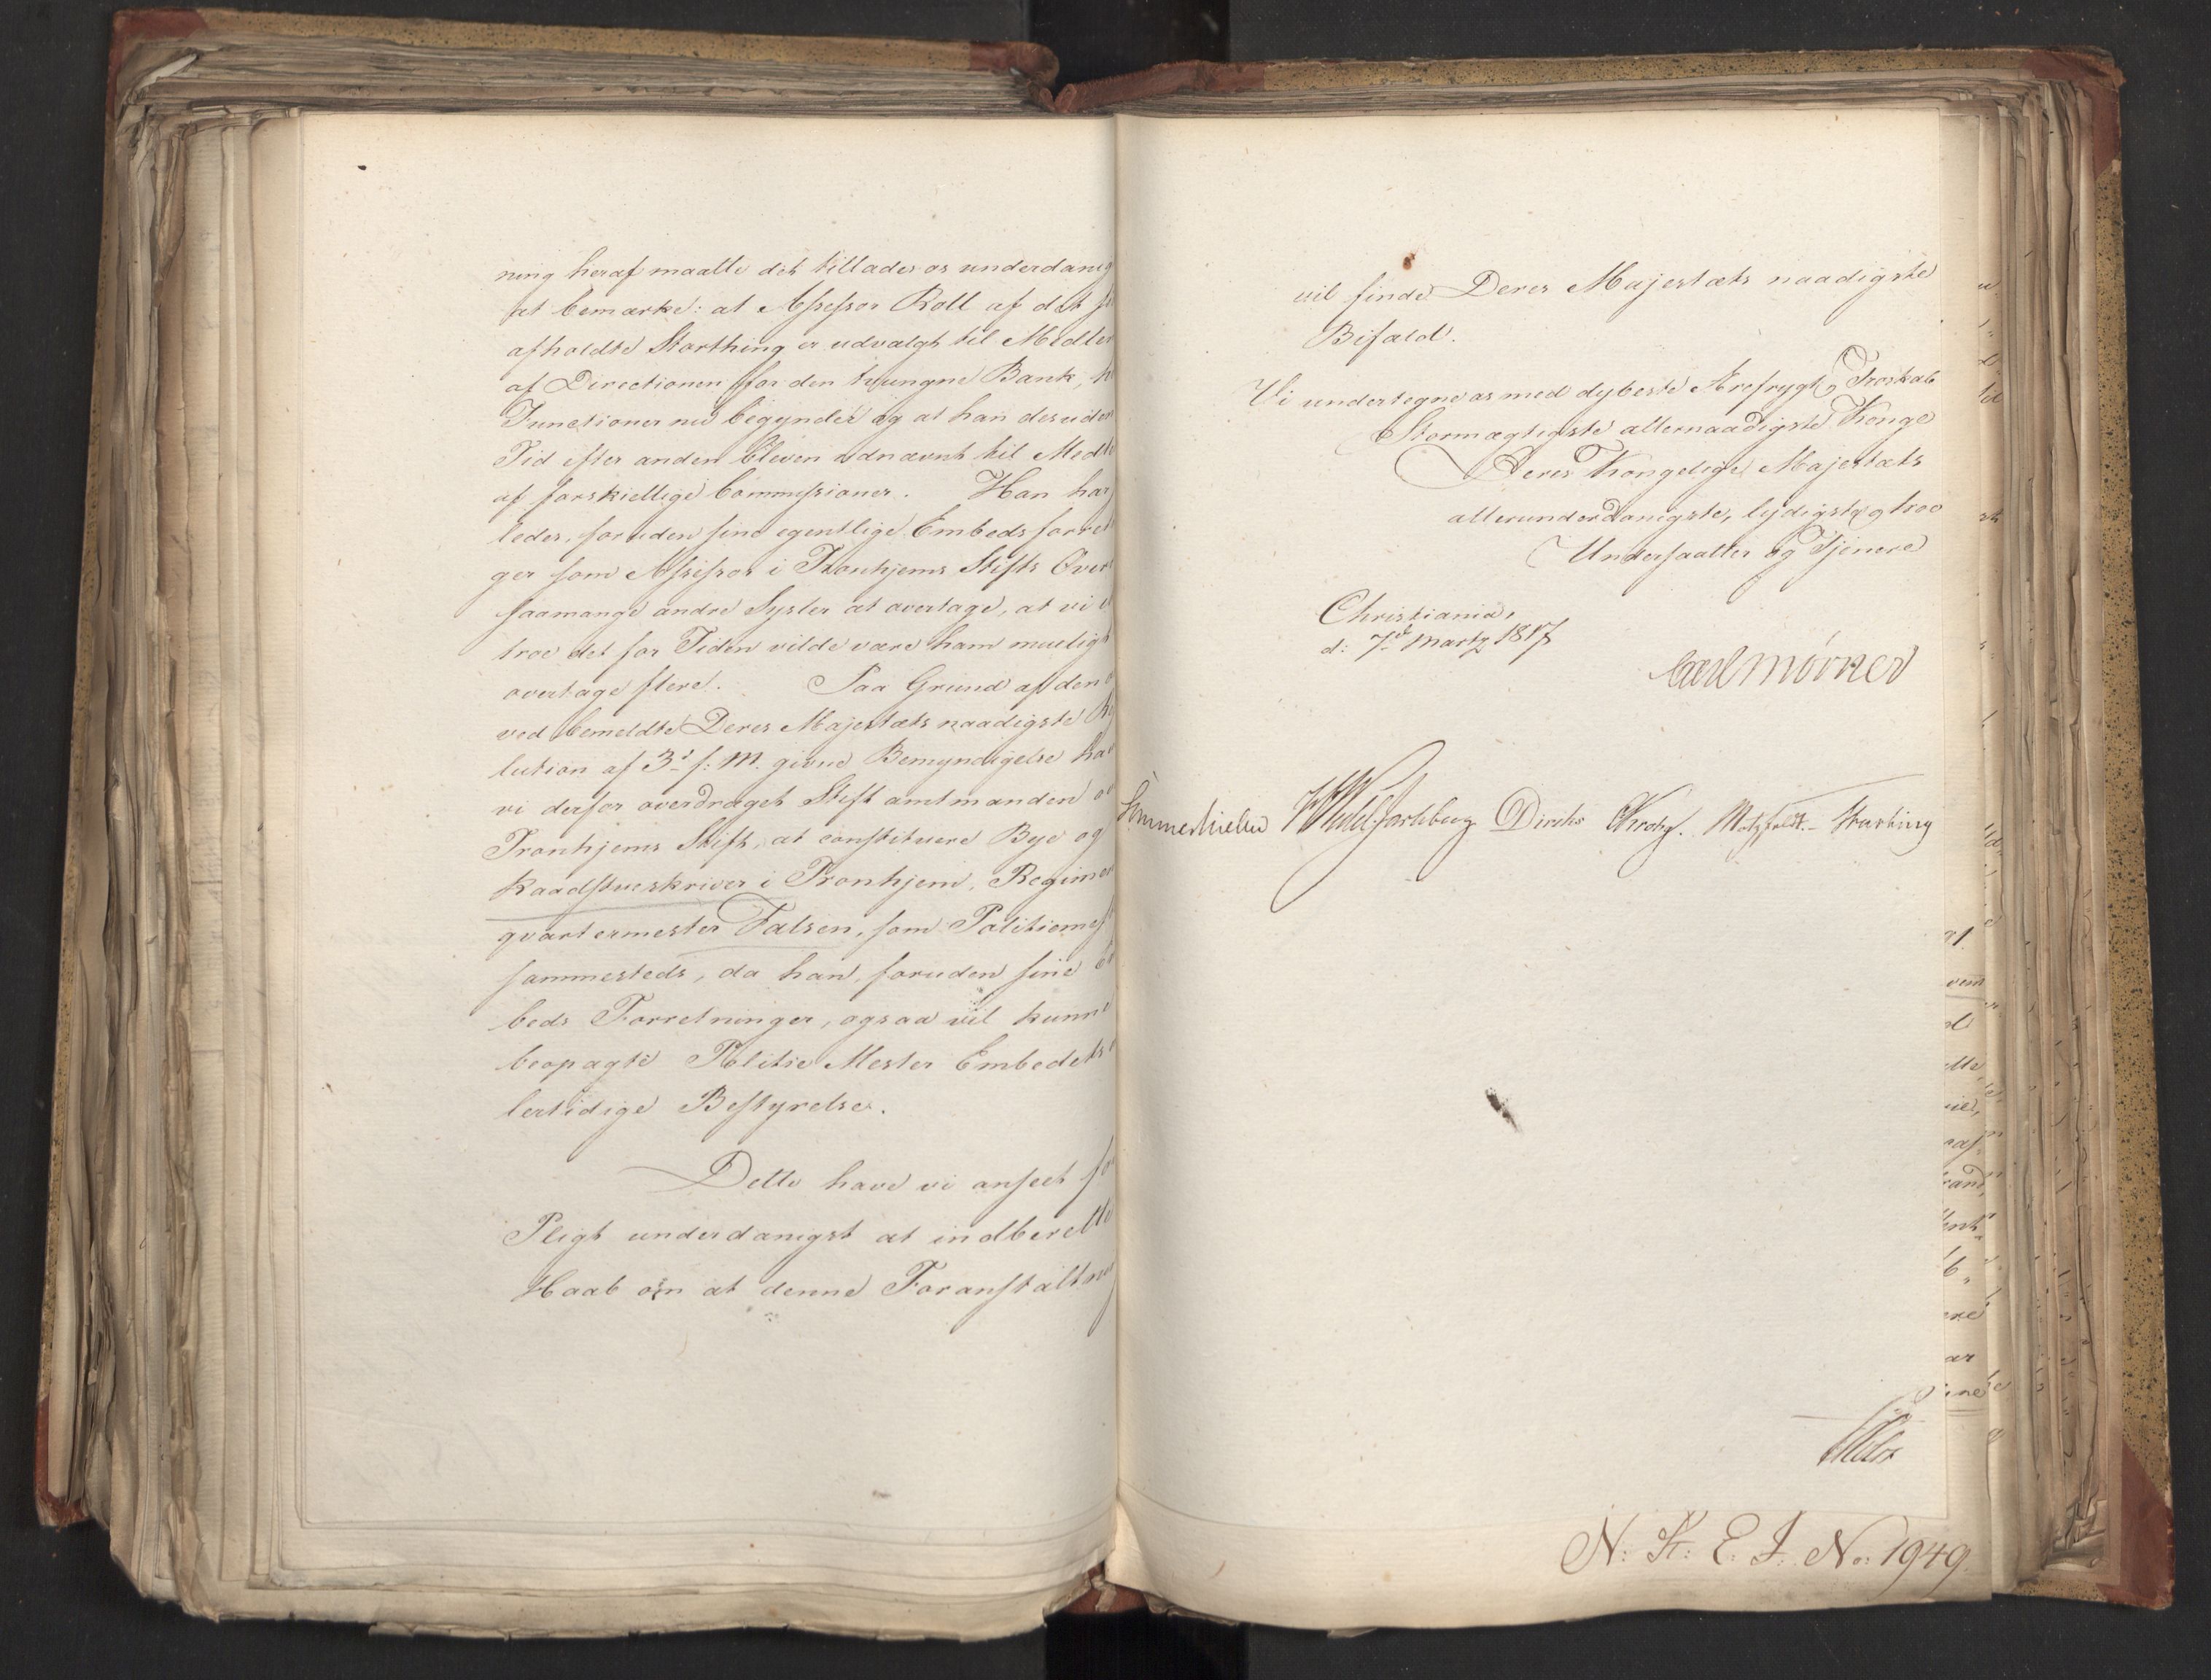 ning heraf maatte det tillades os underdanig
at bemærke: at Assessor Roll af det
afholdte Storthing er udvalgt til Medlem
af Directionen for den tvungne Bank,
Functioner nu begynder og at han desuden
Tid efter anden bleven udnævnt til Medle
af forskiellige Commissioner. Han har
ledes, foruden sine egentlige Embedsforret
ger som Assessor i Tronhjems Stifts Over
saamange andre Sysler at overtage, at vi
troe det for Tiden vilde være ham mueligt
overtage flere. Paa Grund af den
ved bemeldte Deres Majestæts naadigste
lution af 3d f: M. givne Bemyndigelse have
vi derfor overdraget Stiftamtmanden
Tronhjems Stift, at constituere Bye og
Raadstueskriver i Tronhjem, Regimen
qvartermester Falsen, som Politiemest
sammesteds, da han, foruden sine
beds Forretninger, ogsaa vil kunne
beopagte Politie Mester Embedets
lertidige Bestyrelse.
Dette have vi anseet for
Pligt underdanigst at indberette
Haab om at denne Foranstaltning
vil finde Deres Majestæts naadigste
Bifald.
Vi undertegne os med dybeste Ærefrygt og Troskab
Stormægtigste allernaadigste Konge
Deres Kongelige Majestæts
allerunderdanigste, lydigste og troe
Undersaatter og Tjenere
Christiania,
d: 7de Martz 1817
Carl Mörner
Sommerhielm Wedel Jarlsberg Diriks Krohg. Motzfeldt.
N: St: E. J. No: 1949.